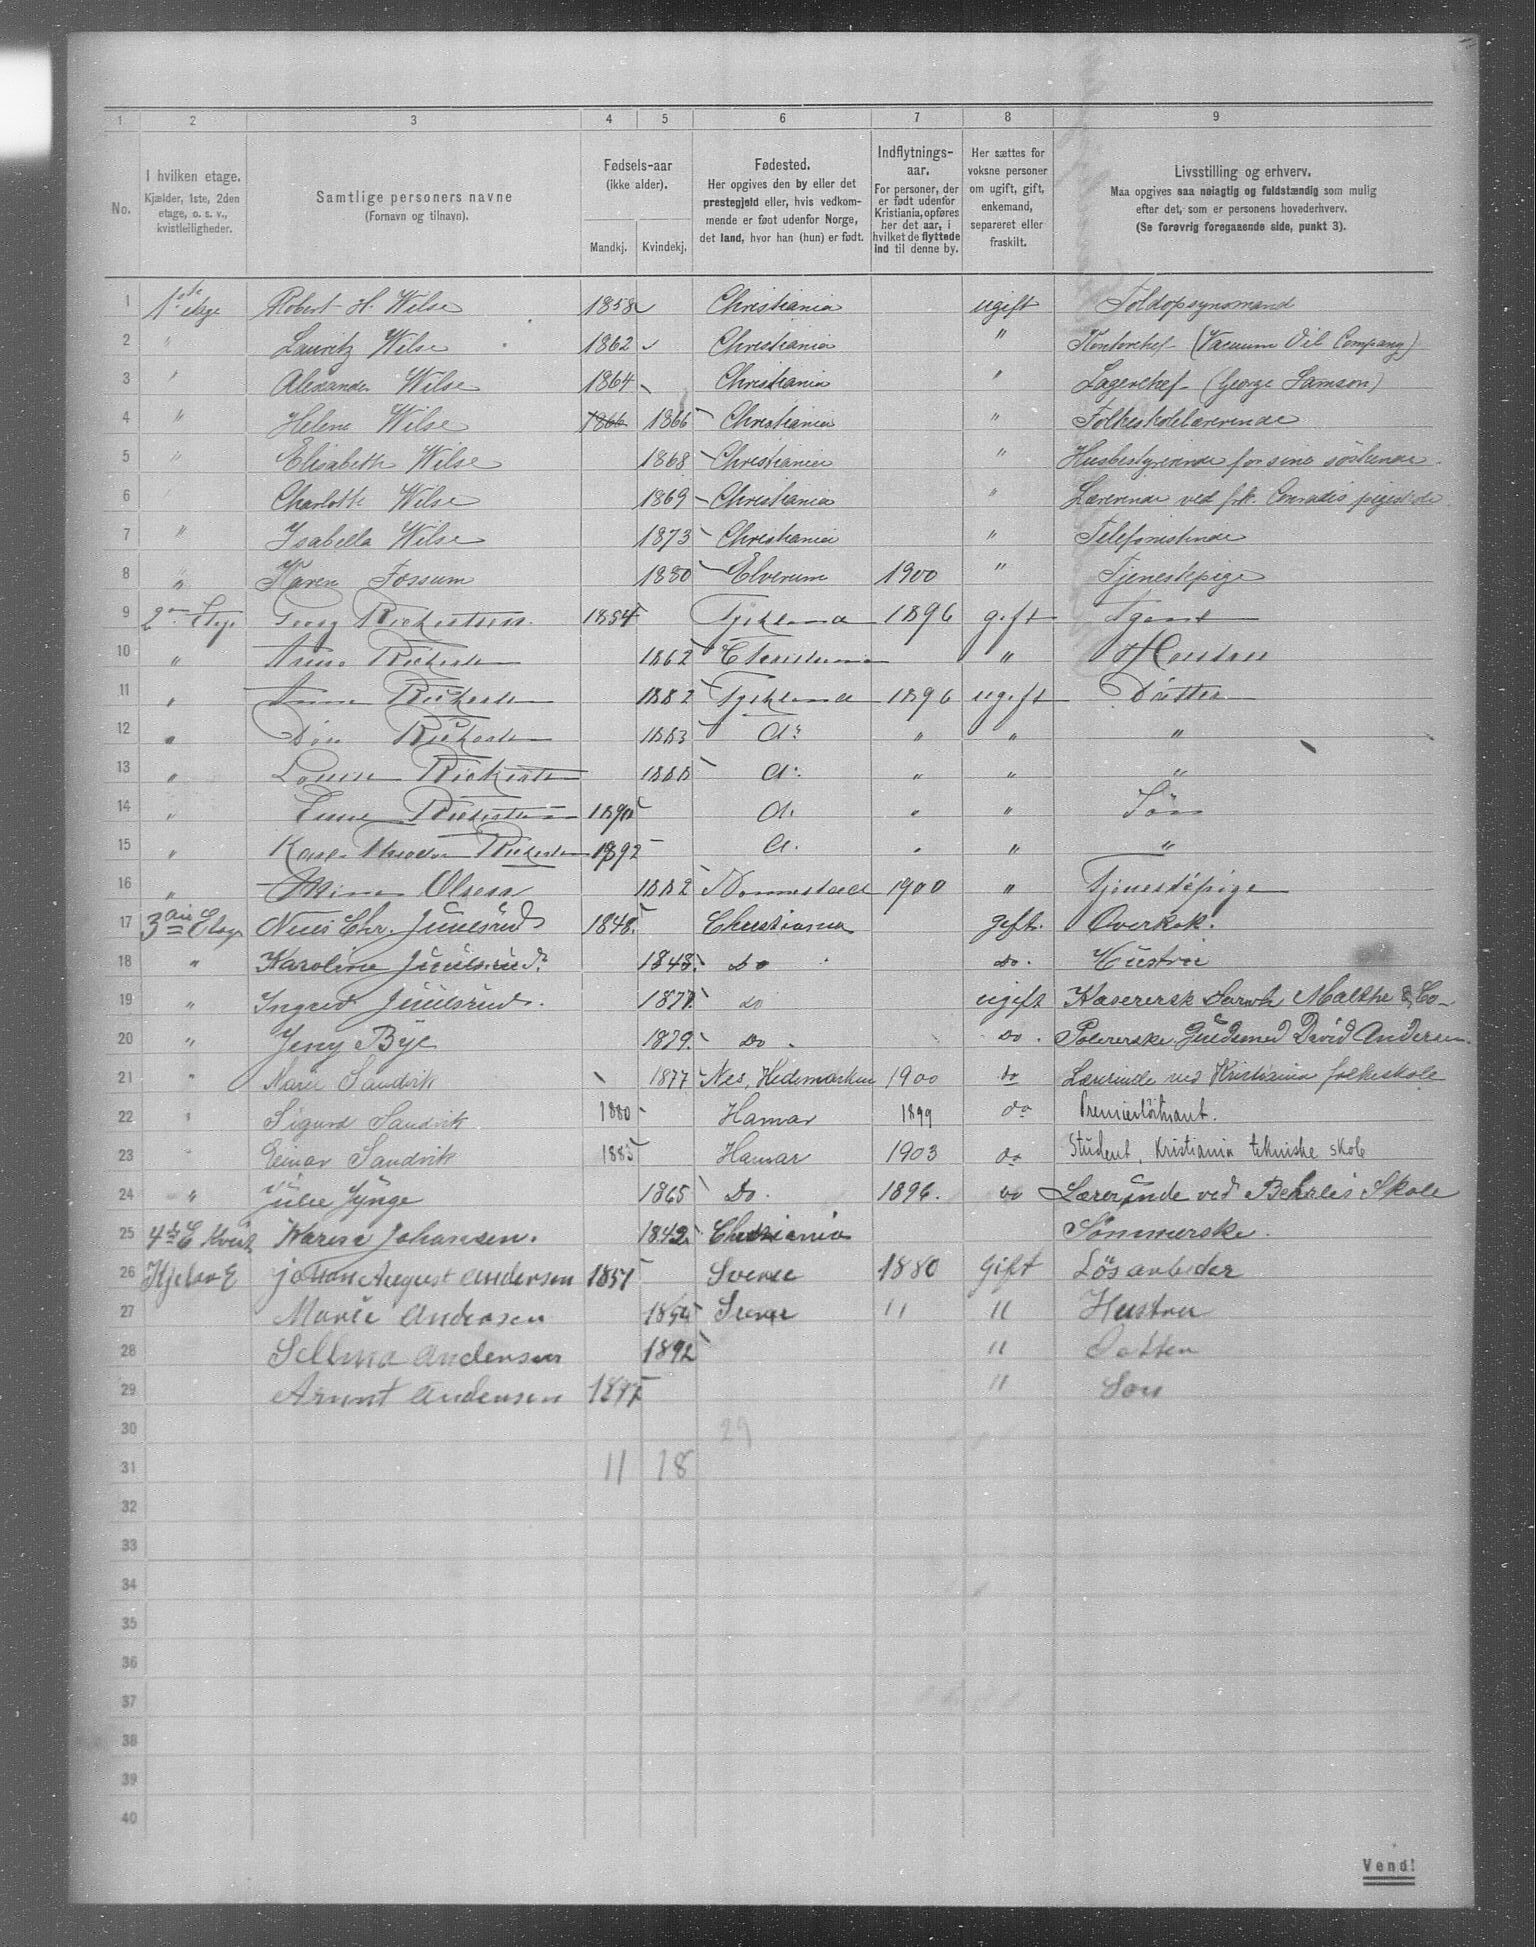 1 2 3 4 5 6 7 8 9
No.
I hvilken etage.
Kjælder, 1ste, 2den
etage, o. s. v.,
kvistleiligheder.
Samtlige personers navne
(Fornavn og tilnavn).
Fødsels-aar
(ikke alder).
Mandkj. Kvindekj.
Fødested.
Her opgives den by eller det
prestegjeld eller, hvis vedkom-
mende er født udenfor Norge,
det land, hvor han (hun) er født.
Indflytnings-
aar.
For personer, der
er født udenfor
Kristiania, opføres
her det aar, i
hvilket de flyttede
ind til denne by.
Her sættes for
voksne personer
om ugift, gift,
enkemand,
separeret eller
fraskilt.
Livsstilling og erhverv.
Maa opgives saa nøiagtig og fuldstændig som mulig
efter det, som er personens hovederhverv.
(Se forøvrig foregaaende side, punkt 3).
1 1ste etage Robert H. Wilse 1858 Christiania ugift Toldopsynsmand
2 " Lauritz Wilse 1862 Christiania " Kontorchef (Vacuum Oil Company)
3 " Alexander Wilse 1864 Christiania " Lagerchef (George Samson)
4 " Helene Wilse 1866 1866 Christiania " Folkeskolelærerinde
5 " Elisabeth Wilse 1868 Christiania " Husbestyrerinde for sine søskende.
6 " Charlotte Wilse 1869 Christiania " Lærerinde ved frk. Conradis pigeskole
7 " Isabella Wilse 1873 Christiania " Telefonistinde
8 " Karen Fossum 1880 Elverum 1900 " Tjenestepige
9 2den Etage Georg 1854 Tyskland 1896 gift Agent
10 " 1862 Christiania " Hustru
11 " Anna 1882 Tyskland 1896 ugift Datter
12 " 1883 do " " "
13 " Louise 1888 do " " "
14 " 1890 do " " Søn
15 " Karl Theodor 1892 do " " "
16 " Olsen 1882 1900 " Tjenestepige
17 3die Etage Chr. Juulsrud 1848. Christiania gift. Overkok.
18 " Karoline Juulsrud. 1848. Do Do. Hustru
19 " Ingrid Juulsrud. 1877. do ugift Kasererske Malthe & Co
20 " Jeny Bye 1879. Do. Do. Polererske Guldsmed David Andersen.
21 " Marie Sandvik 1877 Nes, Hedemarken 1900 do Lærerinde ved Kristiania folkeskole
22 " Sigurd Sandvik 1880 Hamar 1899 do Premierløitnant.
23 " Einar Sandvik 1885 Hamar 1903 do Student, Kristiania tekniske skole
24 " Julie Lynge 1865 Do. 1896. do Lærerinde ved Skole
25 4de E Kvist Karen Johansen. 1842 Christiania Sömmerske.
26 Kjelar E Johan August Andersen 1851 Sverie 1880 Gift Lösarbeder
27 Marie Andersen " " Hustru
28 Sellma Andersen 1892 " Datter
29 Andersen " Son
30 29
31 11 18
32
33
34
35
36
37
38
39
40
Vend!